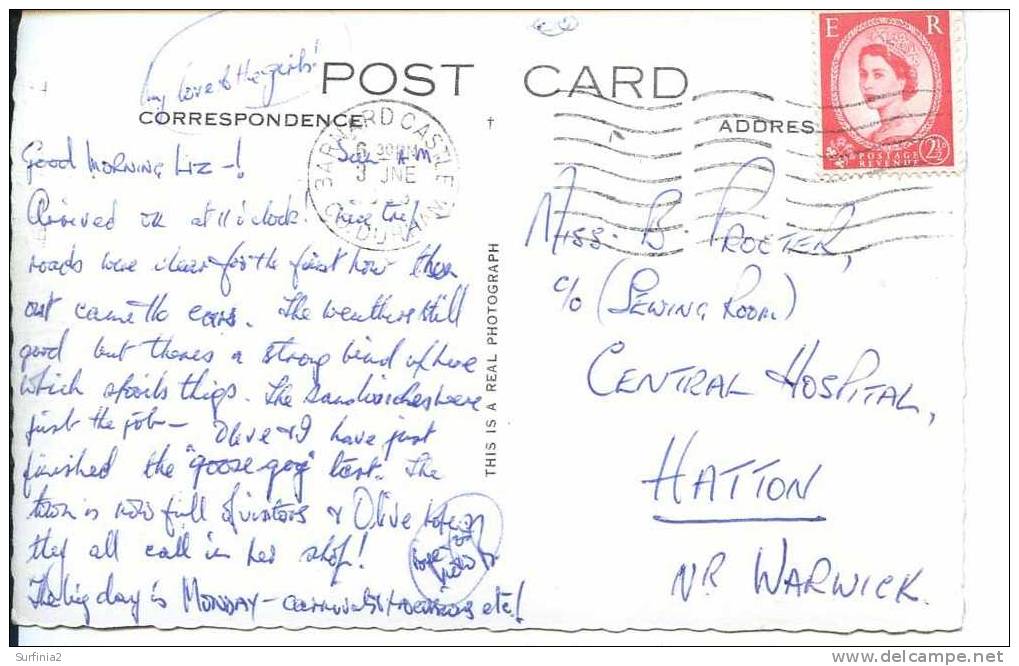 my love to the girls!
POST CARD
CORRESPONDENCE
ADDRESS
BARNARD CASTLE
6 30PM
3 JNE
CO. DURHAM
E R
POSTAGE
REVENUE
2½D
Good MORNING LIZ -!
Sun A.M
Arrived ok at 11 o'clock. Nice trip
roads were clear for the first hour then
out came the cars. The weather still
good but there's a strong wind up here
which spoils things. The sandwiches were
just the job - Olive & I have just
finished the "goose-gog" tart. The
town is now full of visitors & Olive hoping
they all call in her shop!
The big day is MONDAY - carnival
etc!
THIS IS A REAL PHOTOGRAPH
MISS. B. PROCTER,
c/o (SEWING ROOM)
CENTRAL HOSPITAL,
HATTON
NR WARWICK.
Surfinia2
delcampe.net